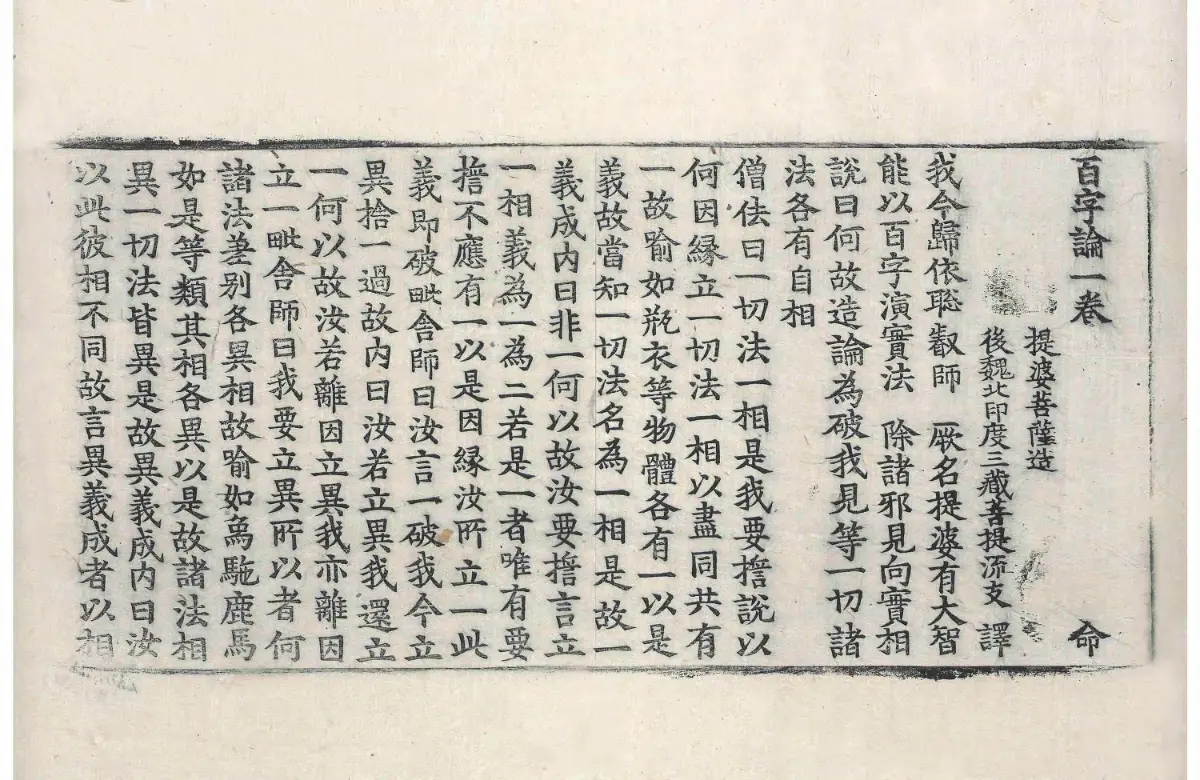 百字論一卷 命
提婆菩薩造
後魏北印度三藏菩提流支 譯
我今歸依聡叡師 厥名提婆有大智
能以百字演實法 除諸邪見向實相
說曰何故造論為破我見等一切諸
法各有自相
僧佉曰一切法一相是我要擔說以
何因緣立一切法一相以盡同共有
一故喻如瓶衣等物體各有一以是
義故當知一切法名為一相是故一
義成內曰非一何以故汝要擔言立
一相義為一為二若是一者唯有要
擔不應有一以是因緣汝所立一此
義即破毗舍師曰汝言一破我今立
異捨一過故內曰汝若立異我還立
一何以故汝若離因立異我亦離因
立一毗舍師曰我要立異所以者何
諸法差别各異相故喻如為駞鹿馬
如是等類其相各異以是故諸法相
異一切法皆異是故異義成內曰汝
以此彼相不同故言異義成者以相